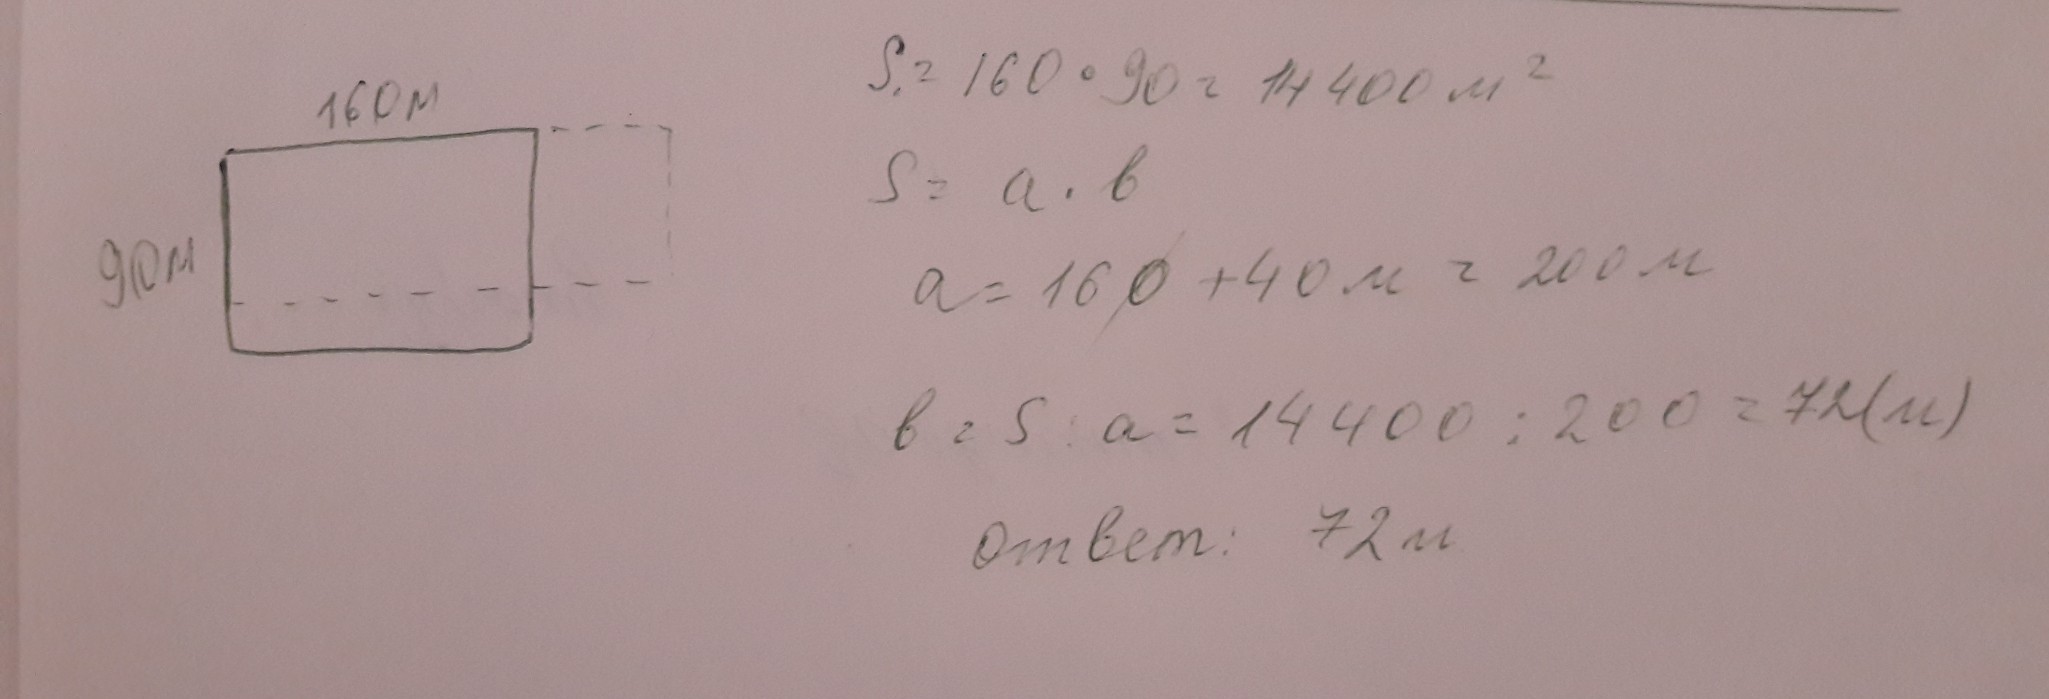 160м
90м
S₁ = 160 · 90 = 14400 м²
S = a · b
a = 160 + 40 м = 200 м
b = S : a = 14400 : 200 = 72 (м)
ответ: 72 м